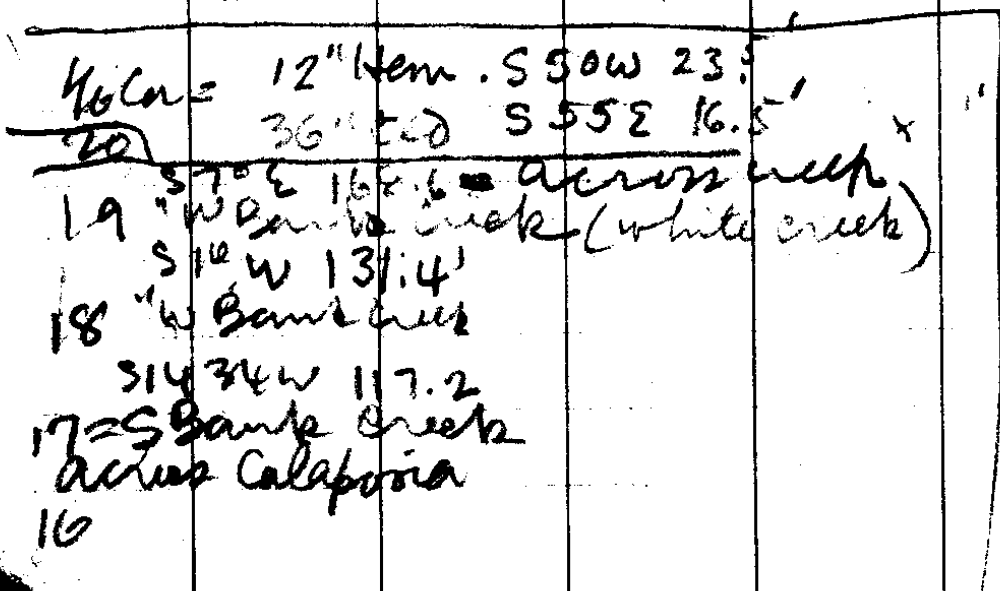 1/16 Cor = 12" Hem. S 50 W 23.5'
36" Ced S 55 E 16.5'
20
S 7° E 16 .6 = across creek
19 "W Bank creek (white creek)
S 1° W 131.4'
18 "W Bank creek
S 14 34 W 117.2
17 = S Bank Creek
across Calapooia
16